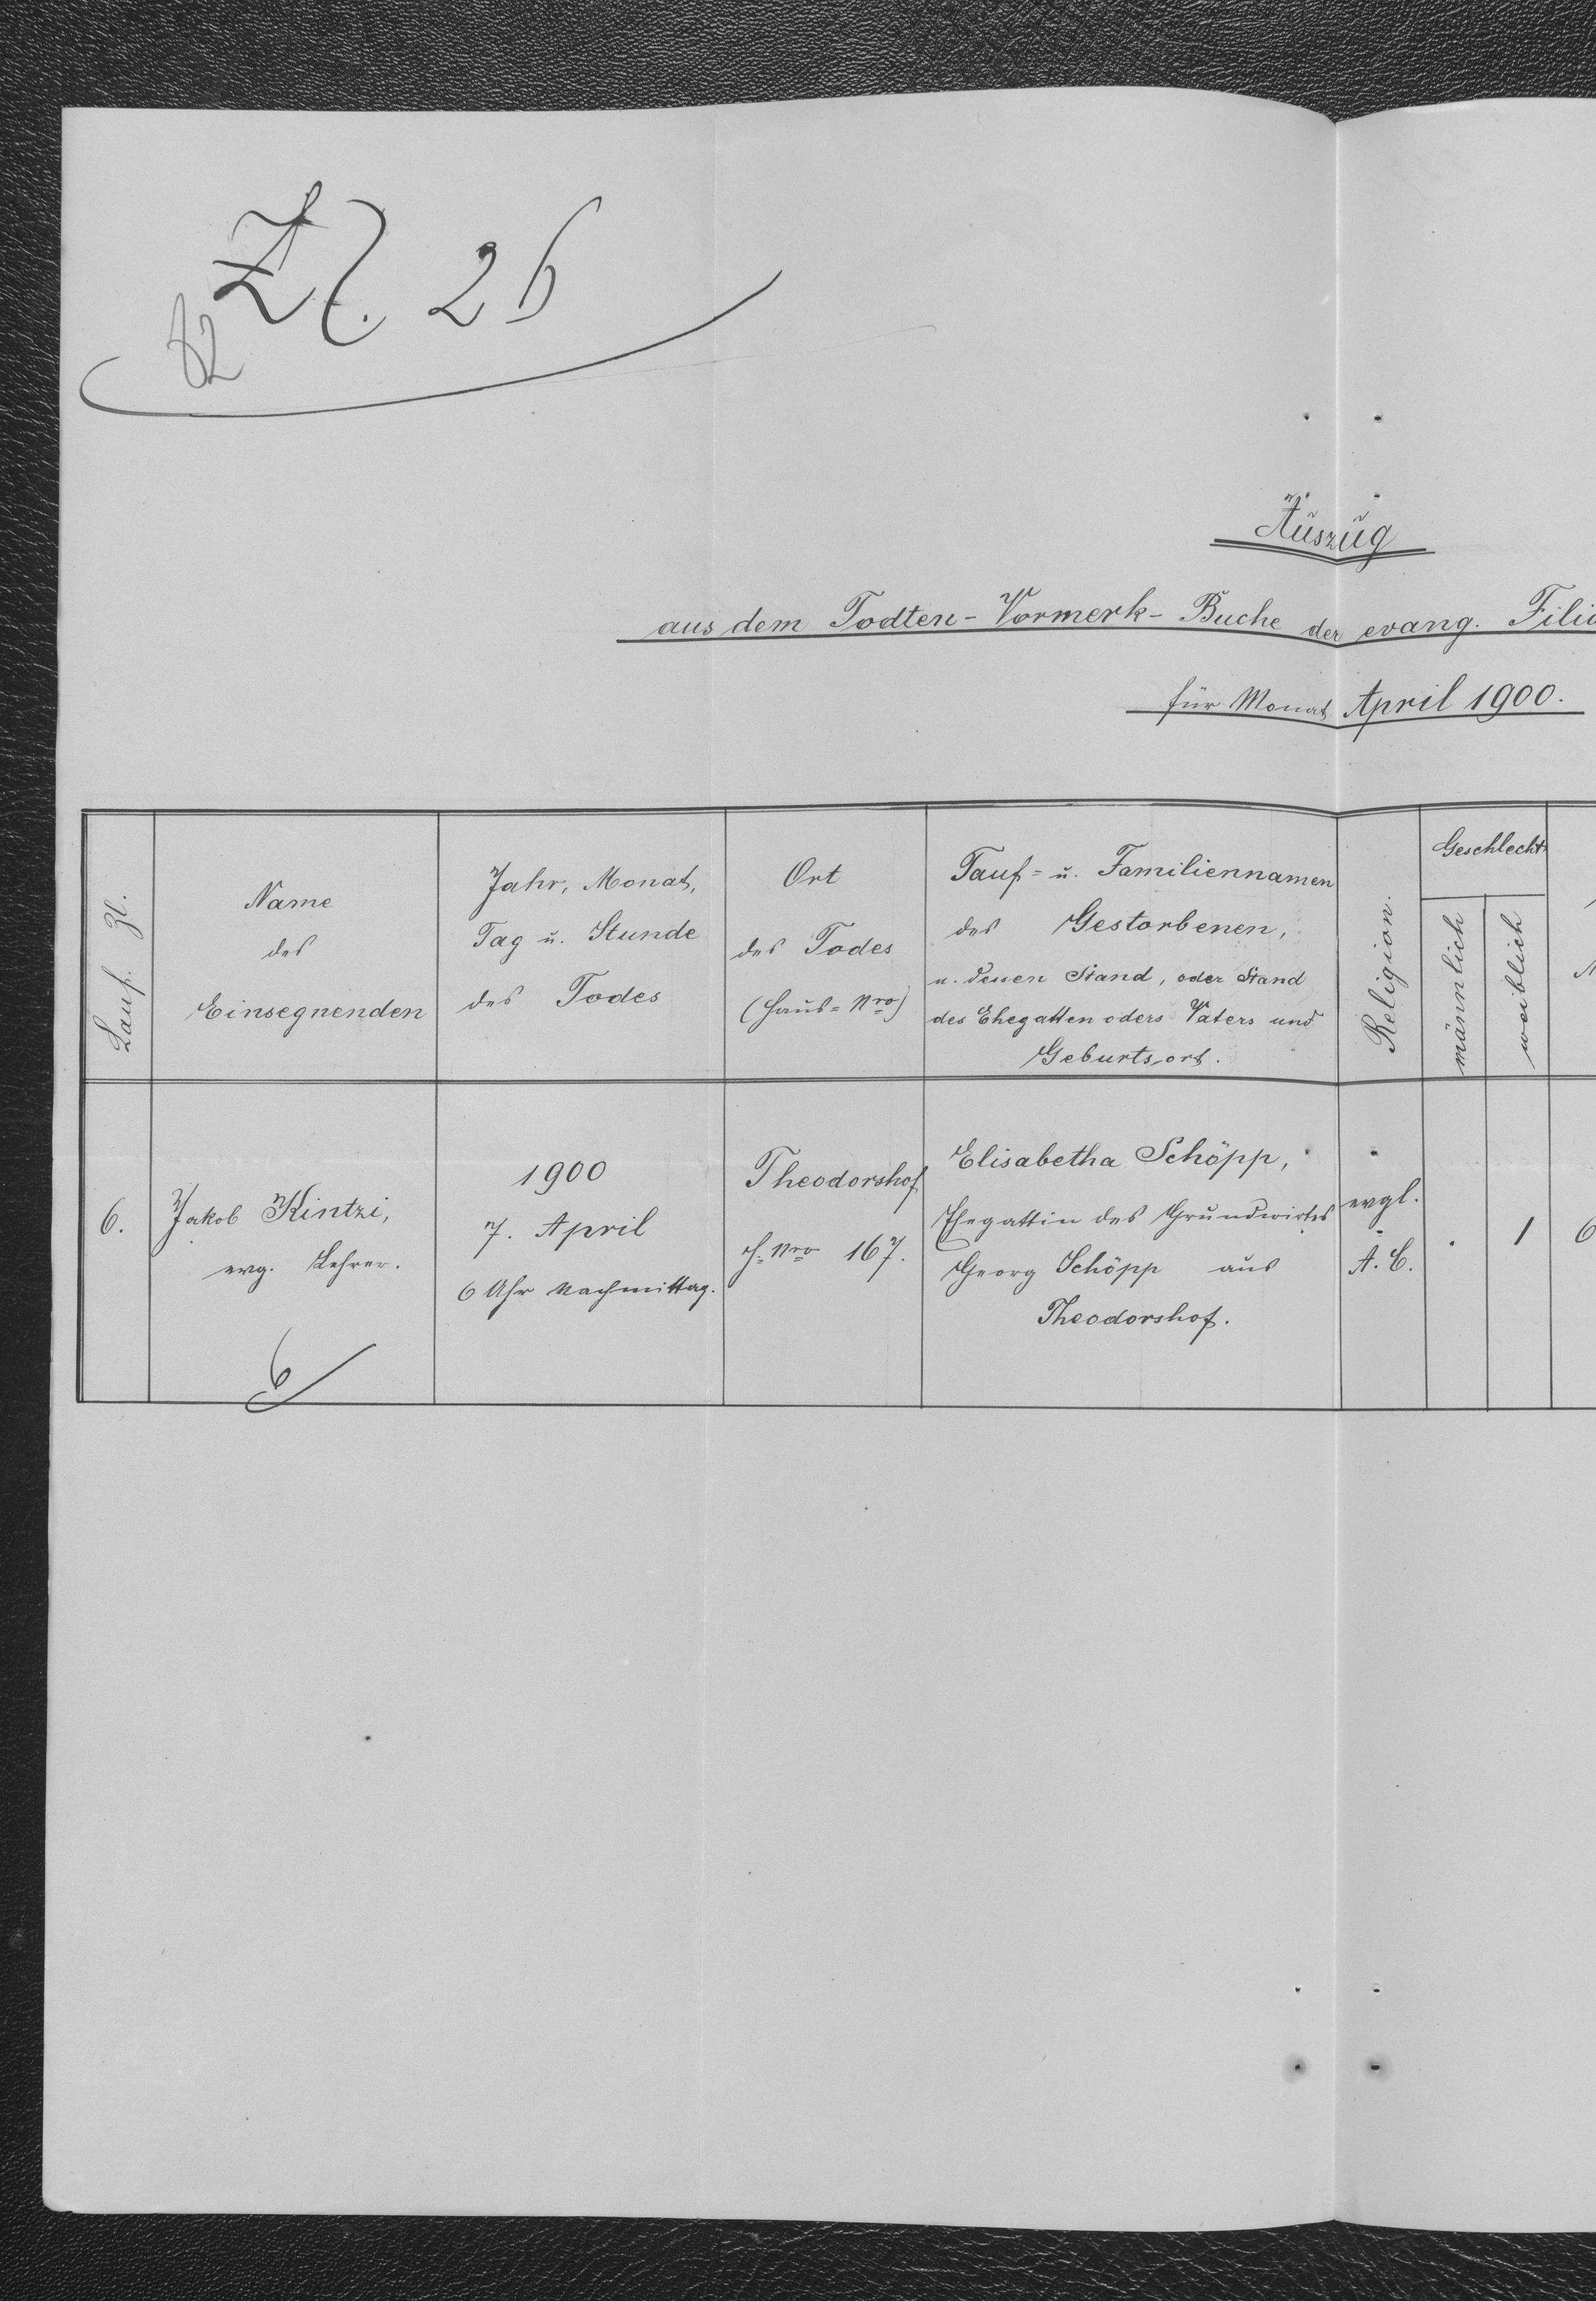 Zl. 26
82
Auszug
aus dem Todten-Vormerk-Buche der evang. Filia
für Monat April 1900.
Lauf. Zl.
Name
des
Einsegnenden
Jahr, Monat,
Tag u. Stunde
des Todes
Ort
des Todes
(Haus=Nro)
Tauf= u. Familiennamen
des Gestorbenen,
u. dessen Stand, oder Stand
des Ehegatten oders Vaters und
Geburtsort.
Religion.
Geschlecht
männlich
weiblich
6.
Jakob Kintzi,
evg. Lehrer.
1900
7. April
6 Uhr Nachmittag.
Theodorshof
H. Nro 167.
Elisabetha Schöpp,
Ehegattin des Grundwirtes
Georg Schöpp aus
Theodorshof.
evgl.
A. C.
1
6